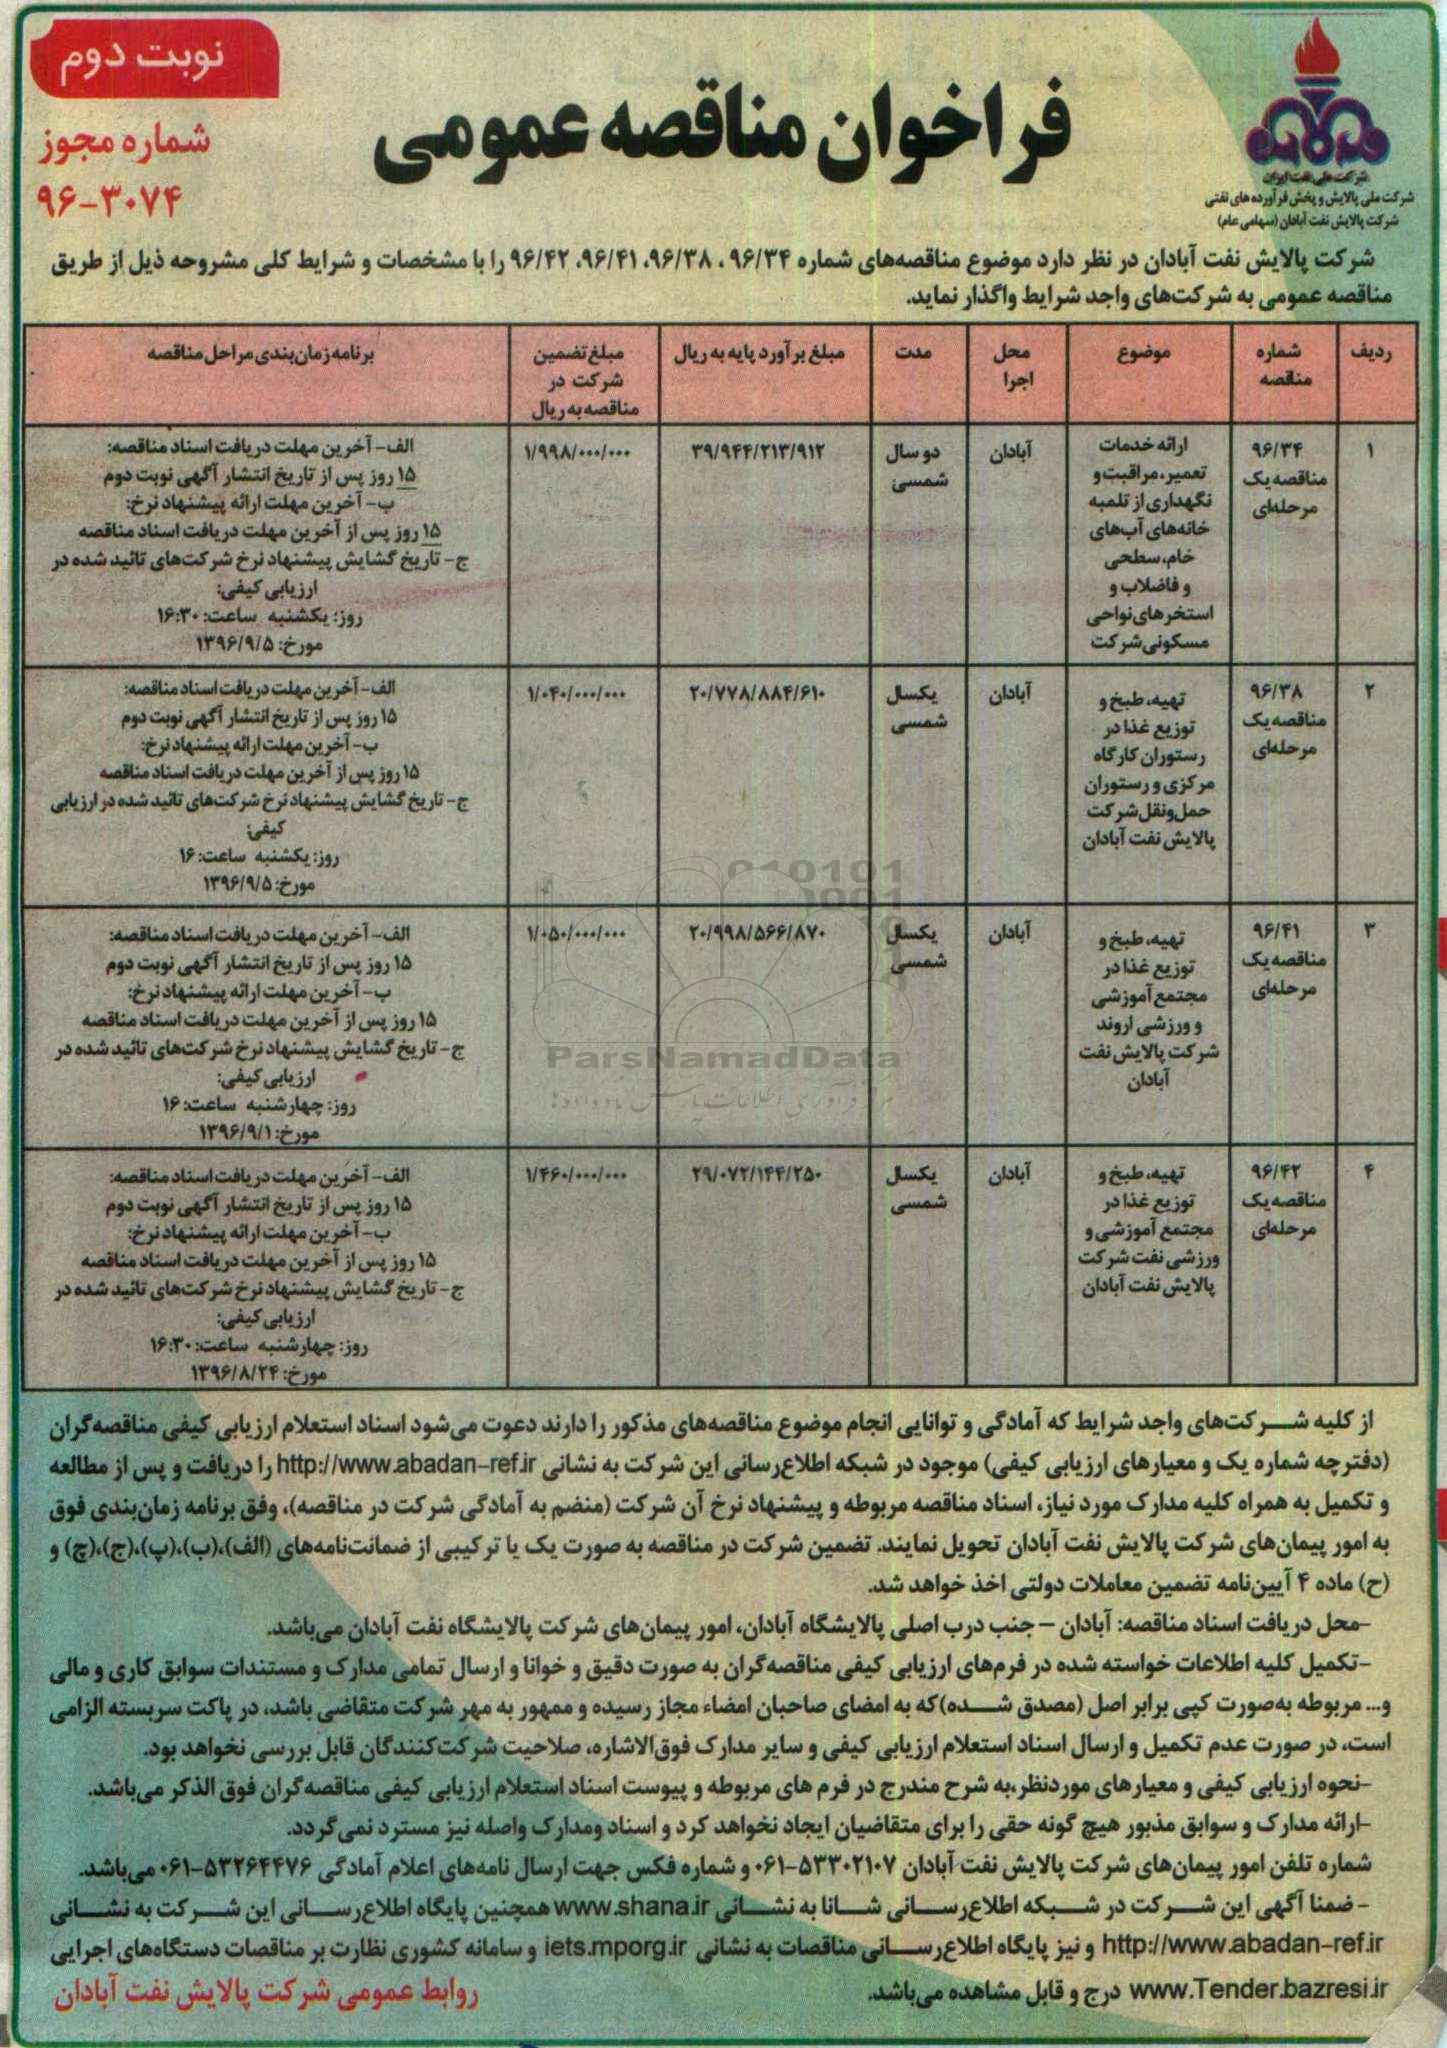 نوبت دوم
شماره مجوز
۹۶-۳۰۷۴
فراخوان مناقصه عمومی
شرکت ملی نفت ایران
شرکت ملی پالایش و پخش فرآورده های نفتی
شرکت پالایش نفت آبادان (سهامی عام)
شرکت پالایش نفت آبادان در نظر دارد موضوع مناقصه‌های شماره ۹۶/۳۴ ، ۹۶/۳۸، ۹۶/۴۱، ۹۶/۴۲ را با مشخصات و شرایط کلی مشروحه ذیل از طریق
مناقصه عمومی به شرکت‌های واجد شرایط واگذار نماید.
ردیف
شماره
مناقصه
موضوع
محل
اجرا
مدت
مبلغ برآورد پایه به ریال
مبلغ تضمین
شرکت در
مناقصه به ریال
برنامه زمان‌بندی مراحل مناقصه
۱
۹۶/۳۴
مناقصه یک
مرحله‌ای
ارائه خدمات
تعمیر، مراقبت و
نگهداری از تلمبه
خانه‌های آب‌های
خام، سطحی
و فاضلاب و
استخرهای نواحی
مسکونی شرکت
آبادان
دو سال
شمسی
۳۹/۹۴۴/۲۱۳/۹۱۲
۱/۹۹۸/۰۰۰/۰۰۰
الف- آخرین مهلت دریافت اسناد مناقصه:
۱۵ روز پس از تاریخ انتشار آگهی نوبت دوم
ب- آخرین مهلت ارائه پیشنهاد نرخ:
۱۵ روز پس از آخرین مهلت دریافت اسناد مناقصه
ج- تاریخ گشایش پیشنهاد نرخ شرکت‌های تائید شده در
ارزیابی کیفی:
روز: یکشنبه ساعت: ۱۶:۳۰
مورخ: ۱۳۹۶/۹/۵
۲
۹۶/۳۸
مناقصه یک
مرحله‌ای
تهیه، طبخ و
توزیع غذا در
رستوران کارگاه
مرکزی و رستوران
حمل‌ونقل شرکت
پالایش نفت آبادان
آبادان
یکسال
شمسی
۲۰/۷۷۸/۸۸۴/۶۱۰
۱/۰۴۰/۰۰۰/۰۰۰
الف- آخرین مهلت دریافت اسناد مناقصه:
۱۵ روز پس از تاریخ انتشار آگهی نوبت دوم
ب- آخرین مهلت ارائه پیشنهاد نرخ:
۱۵ روز پس از آخرین مهلت دریافت اسناد مناقصه
ج- تاریخ گشایش پیشنهاد نرخ شرکت‌های تائید شده در ارزیابی
کیفی:
روز: یکشنبه ساعت: ۱۶
مورخ: ۱۳۹۶/۹/۵
۳
۹۶/۴۱
مناقصه یک
مرحله‌ای
تهیه، طبخ و
توزیع غذا در
مجتمع آموزشی
و ورزشی اروند
شرکت پالایش نفت
آبادان
آبادان
یکسال
شمسی
۲۰/۹۹۸/۵۶۶/۸۷۰
۱/۰۵۰/۰۰۰/۰۰۰
الف- آخرین مهلت دریافت اسناد مناقصه:
۱۵ روز پس از تاریخ انتشار آگهی نوبت دوم
ب- آخرین مهلت ارائه پیشنهاد نرخ:
۱۵ روز پس از آخرین مهلت دریافت اسناد مناقصه
ج- تاریخ گشایش پیشنهاد نرخ شرکت‌های تائید شده در
ارزیابی کیفی:
روز: چهارشنبه ساعت: ۱۶
مورخ: ۱۳۹۶/۹/۱
ParsNamadData
۴
۹۶/۴۲
مناقصه یک
مرحله‌ای
تهیه، طبخ و
توزیع غذا در
مجتمع آموزشی و
ورزشی نفت شرکت
پالایش نفت آبادان
آبادان
یکسال
شمسی
۲۹/۰۷۲/۱۴۴/۲۵۰
۱/۴۶۰/۰۰۰/۰۰۰
الف- آخرین مهلت دریافت اسناد مناقصه:
۱۵ روز پس از تاریخ انتشار آگهی نوبت دوم
ب- آخرین مهلت ارائه پیشنهاد نرخ:
۱۵ روز پس از آخرین مهلت دریافت اسناد مناقصه
ج- تاریخ گشایش پیشنهاد نرخ شرکت‌های تائید شده در
ارزیابی کیفی:
روز: چهارشنبه ساعت: ۱۶:۳۰
مورخ: ۱۳۹۶/۸/۲۴
از کلیه شرکت‌های واجد شرایط که آمادگی و توانایی انجام موضوع مناقصه‌های مذکور را دارند دعوت می‌شود اسناد استعلام ارزیابی کیفی مناقصه‌گران
(دفترچه شماره یک و معیارهای ارزیابی کیفی) موجود در شبکه اطلاع‌رسانی این شرکت به نشانی http://www.abadan-ref.ir را دریافت و پس از مطالعه
و تکمیل به همراه کلیه مدارک مورد نیاز، اسناد مناقصه مربوطه و پیشنهاد نرخ آن شرکت (منضم به آمادگی شرکت در مناقصه)، وفق برنامه زمان‌بندی فوق
به امور پیمان‌های شرکت پالایش نفت آبادان تحویل نمایند. تضمین شرکت در مناقصه به صورت یک یا ترکیبی از ضمانت‌نامه‌های (الف)،(ب)،(پ)،(ج)،(چ) و
(ح) ماده ۴ آیین‌نامه تضمین معاملات دولتی اخذ خواهد شد.
-محل دریافت اسناد مناقصه: آبادان – جنب درب اصلی پالایشگاه آبادان، امور پیمان‌های شرکت پالایشگاه نفت آبادان می‌باشد.
-تکمیل کلیه اطلاعات خواسته شده در فرم‌های ارزیابی کیفی مناقصه‌گران به صورت دقیق و خوانا و ارسال تمامی مدارک و مستندات سوابق کاری و مالی
و... مربوطه به‌صورت کپی برابر اصل (مصدق شده)که به امضای صاحبان امضاء مجاز رسیده و ممهور به مهر شرکت متقاضی باشد، در پاکت سربسته الزامی
است، در صورت عدم تکمیل و ارسال اسناد استعلام ارزیابی کیفی و سایر مدارک فوق‌الاشاره، صلاحیت شرکت‌کنندگان قابل بررسی نخواهد بود.
-نحوه ارزیابی کیفی و معیارهای موردنظر،به شرح مندرج در فرم های مربوطه و پیوست اسناد استعلام ارزیابی کیفی مناقصه‌گران فوق الذکر می‌باشد.
-ارائه مدارک و سوابق مذبور هیچ گونه حقی را برای متقاضیان ایجاد نخواهد کرد و اسناد ومدارک واصله نیز مسترد نمی‌گردد.
شماره تلفن امور پیمان‌های شرکت پالایش نفت آبادان ۵۳۳۰۲۱۰۷-۰۶۱ و شماره فکس جهت ارسال نامه‌های اعلام آمادگی ۵۳۲۶۴۴۷۶-۰۶۱ می‌باشد.
- ضمنا آگهی این شرکت در شبکه اطلاع‌رسانی شانا به نشانی www.shana.ir همچنین پایگاه اطلاع‌رسانی این شرکت به نشانی
http://www.abadan-ref.ir و نیز پایگاه اطلاع‌رسانی مناقصات به نشانی iets.mporg.ir و سامانه کشوری نظارت بر مناقصات دستگاه‌های اجرایی
www.Tender.bazresi.ir درج و قابل مشاهده می‌باشد.
روابط عمومی شرکت پالایش نفت آبادان